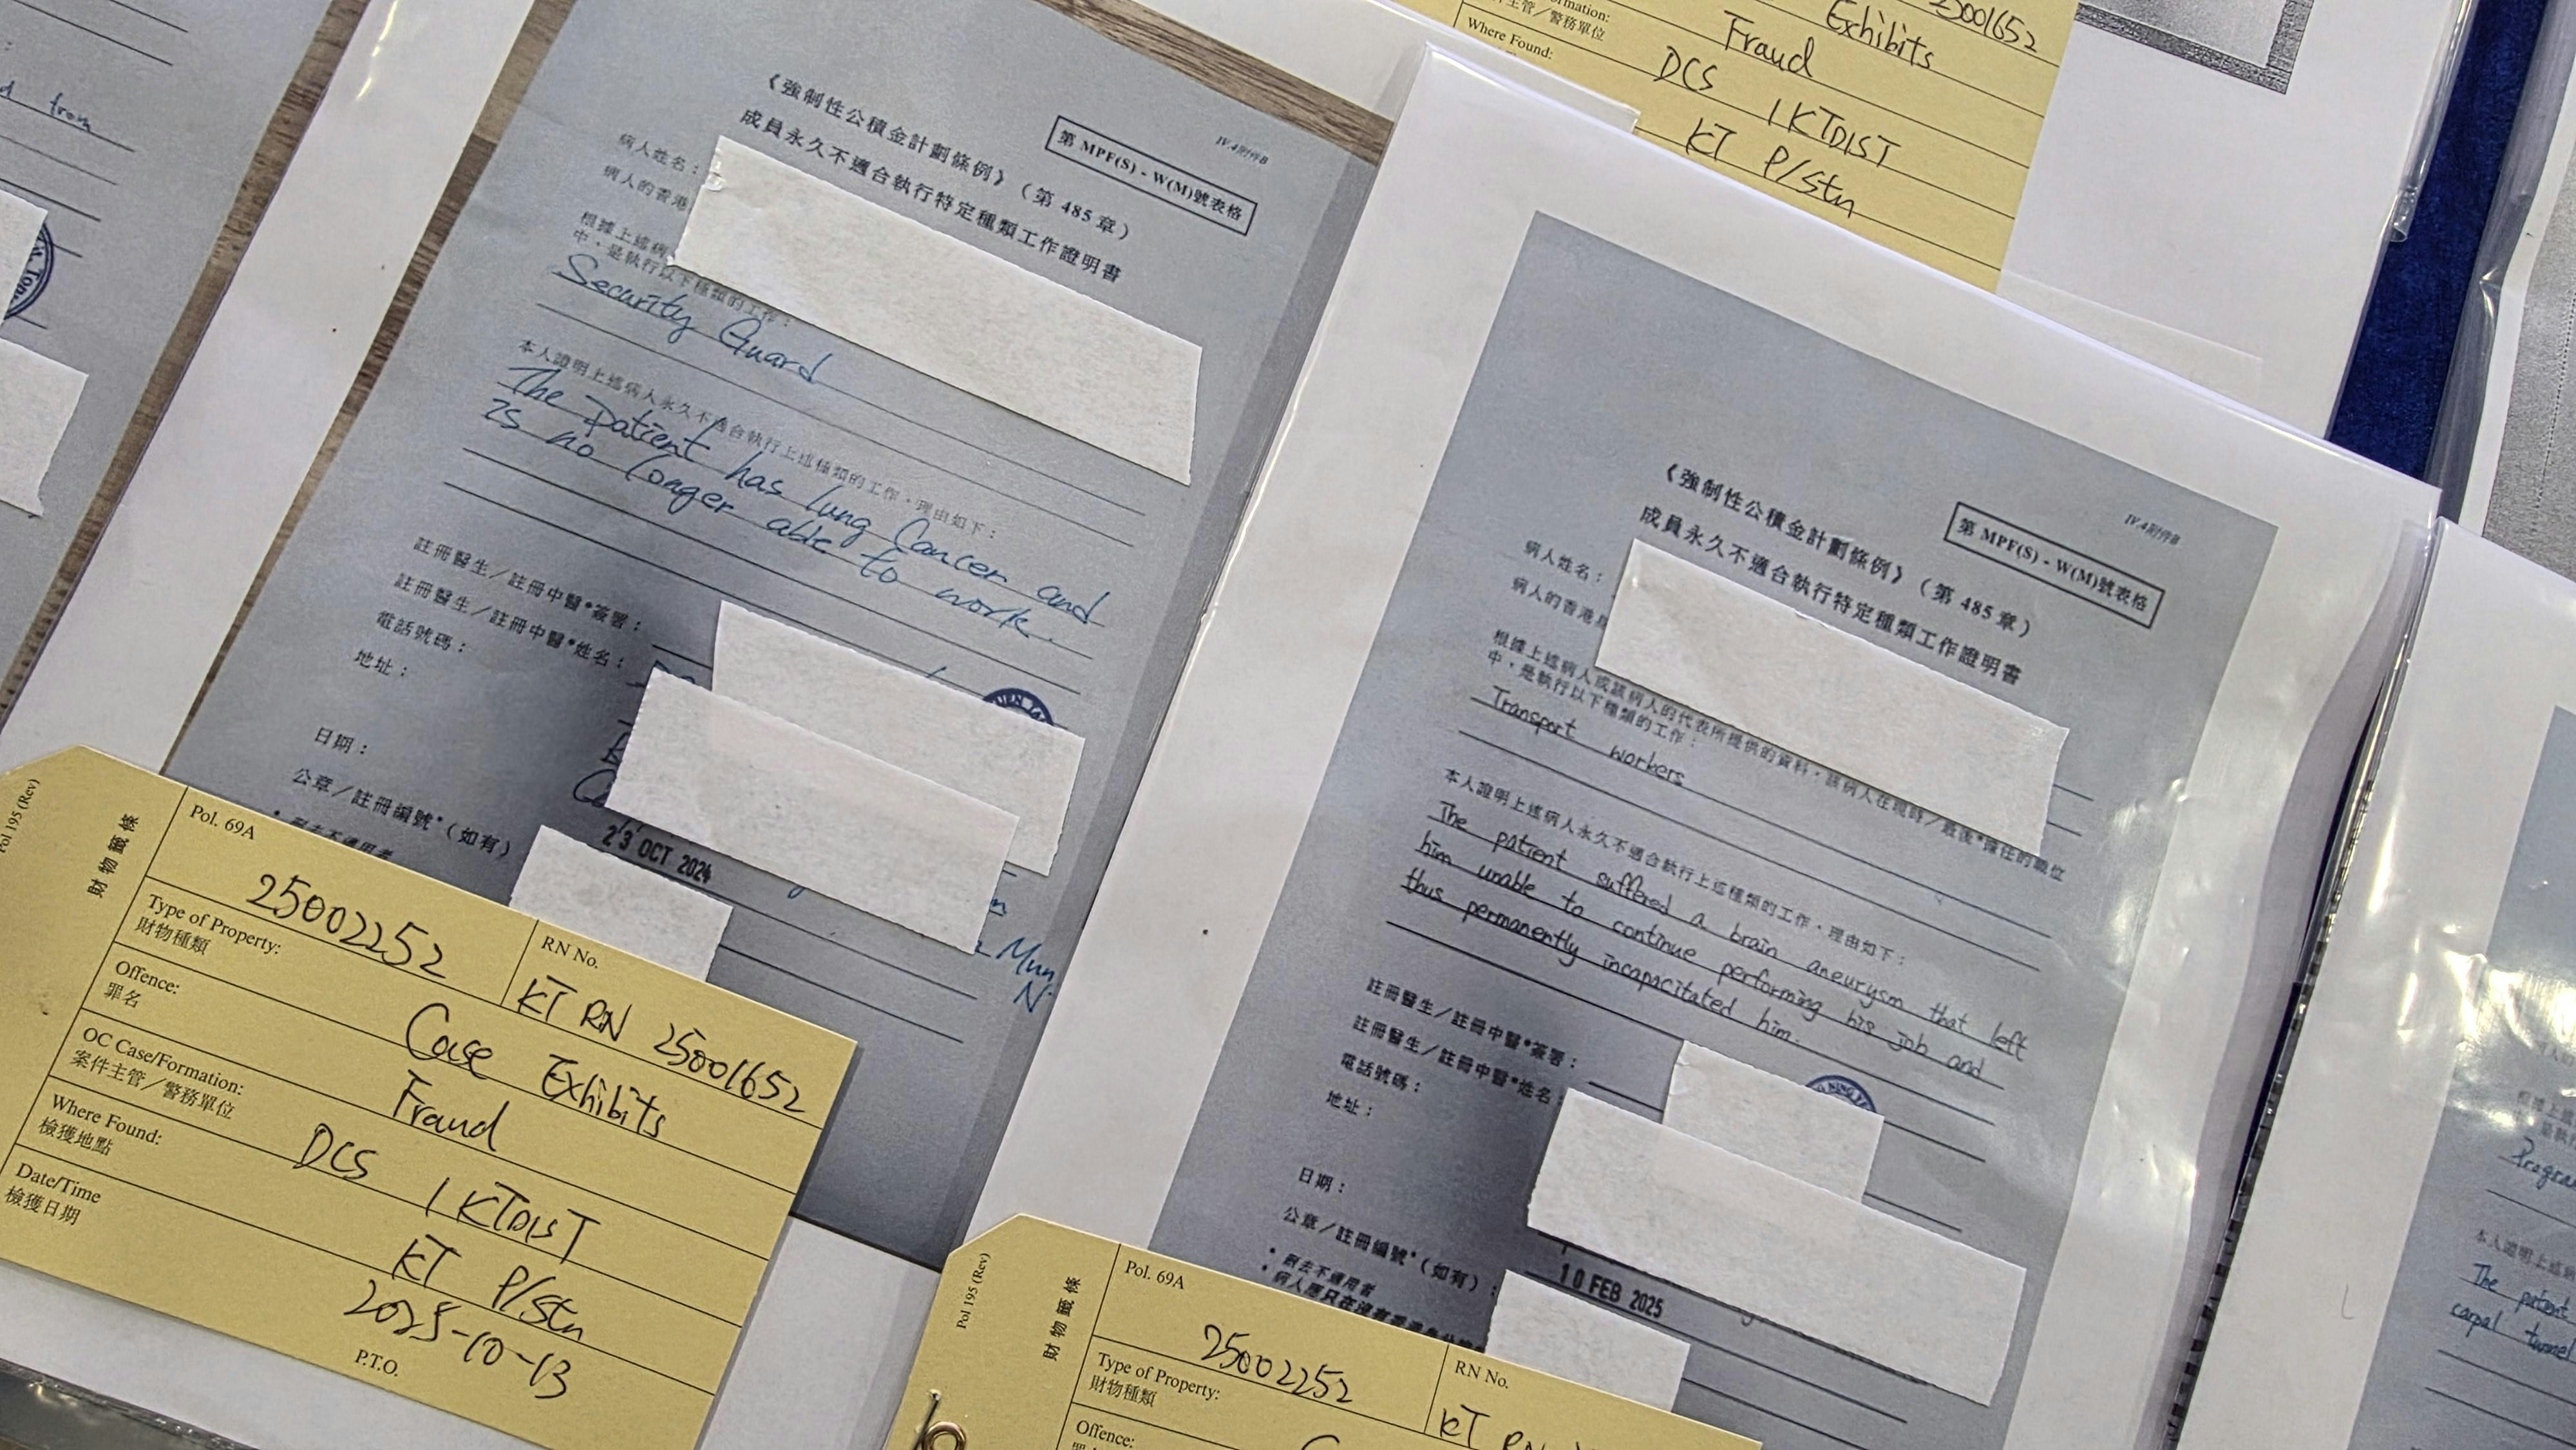 d from
IV.4附件B
第 MPF(S) - W(M)號表格
《強制性公積金計劃條例》（第 485 章）
成員永久不適合執行特定種類工作證明書
病人姓名：
病人的香港
根據上述病
中，是執行以下種類的工作：
Security Guard
本人證明上述病人永久不適合執行上述種類的工作，理由如下：
The Patient has lung Cancer and
is no longer able to work.
註冊醫生／註冊中醫*簽署：
註冊醫生／註冊中醫*姓名：
電話號碼：
地址：
Mun
N
日期：
23 OCT 2024
公章／註冊編號*（如有）
* 刪去不適用者
Pol 195 (Rev)
財物籤條
Pol. 69A
25002252
RN No.
KT RN 25001652
Type of Property:
財物種類
Case Exhibits
Offence:
罪名
Fraud
OC Case/Formation:
案件主管／警務單位
DCS 1 KTDIST
Where Found:
檢獲地點
KT P/Stn
Date/Time
檢獲日期
2025-10-13
P.T.O.
25001652
Exhibits
Fraud
ormation:
件主管／警務單位
DCS 1 KTDIST
Where Found:
KT P/Stn
IV.4附件B
第 MPF(S) - W(M)號表格
《強制性公積金計劃條例》（第 485 章）
成員永久不適合執行特定種類工作證明書
病人姓名：
病人的香港
根據上述病人或該病人的代表所提供的資料，該病人在現時／最後*擔任的職位
中，是執行以下種類的工作：
Transport workers
本人證明上述病人永久不適合執行上述種類的工作，理由如下：
The patient suffered a brain aneurysm that left
him unable to continue performing his job and
thus permanently incapacitated him.
註冊醫生／註冊中醫*簽署：
註冊醫生／註冊中醫*姓名：
電話號碼：
地址：
日期：
10 FEB 2025
公章／註冊編號*（如有）：
* 刪去不適用者
Pol 195 (Rev)
財物籤條
Pol. 69A
25002252
RN No.
KT RN
Type of Property:
財物種類
Offence:
本人證明上述病
The patient
carpal tunnel